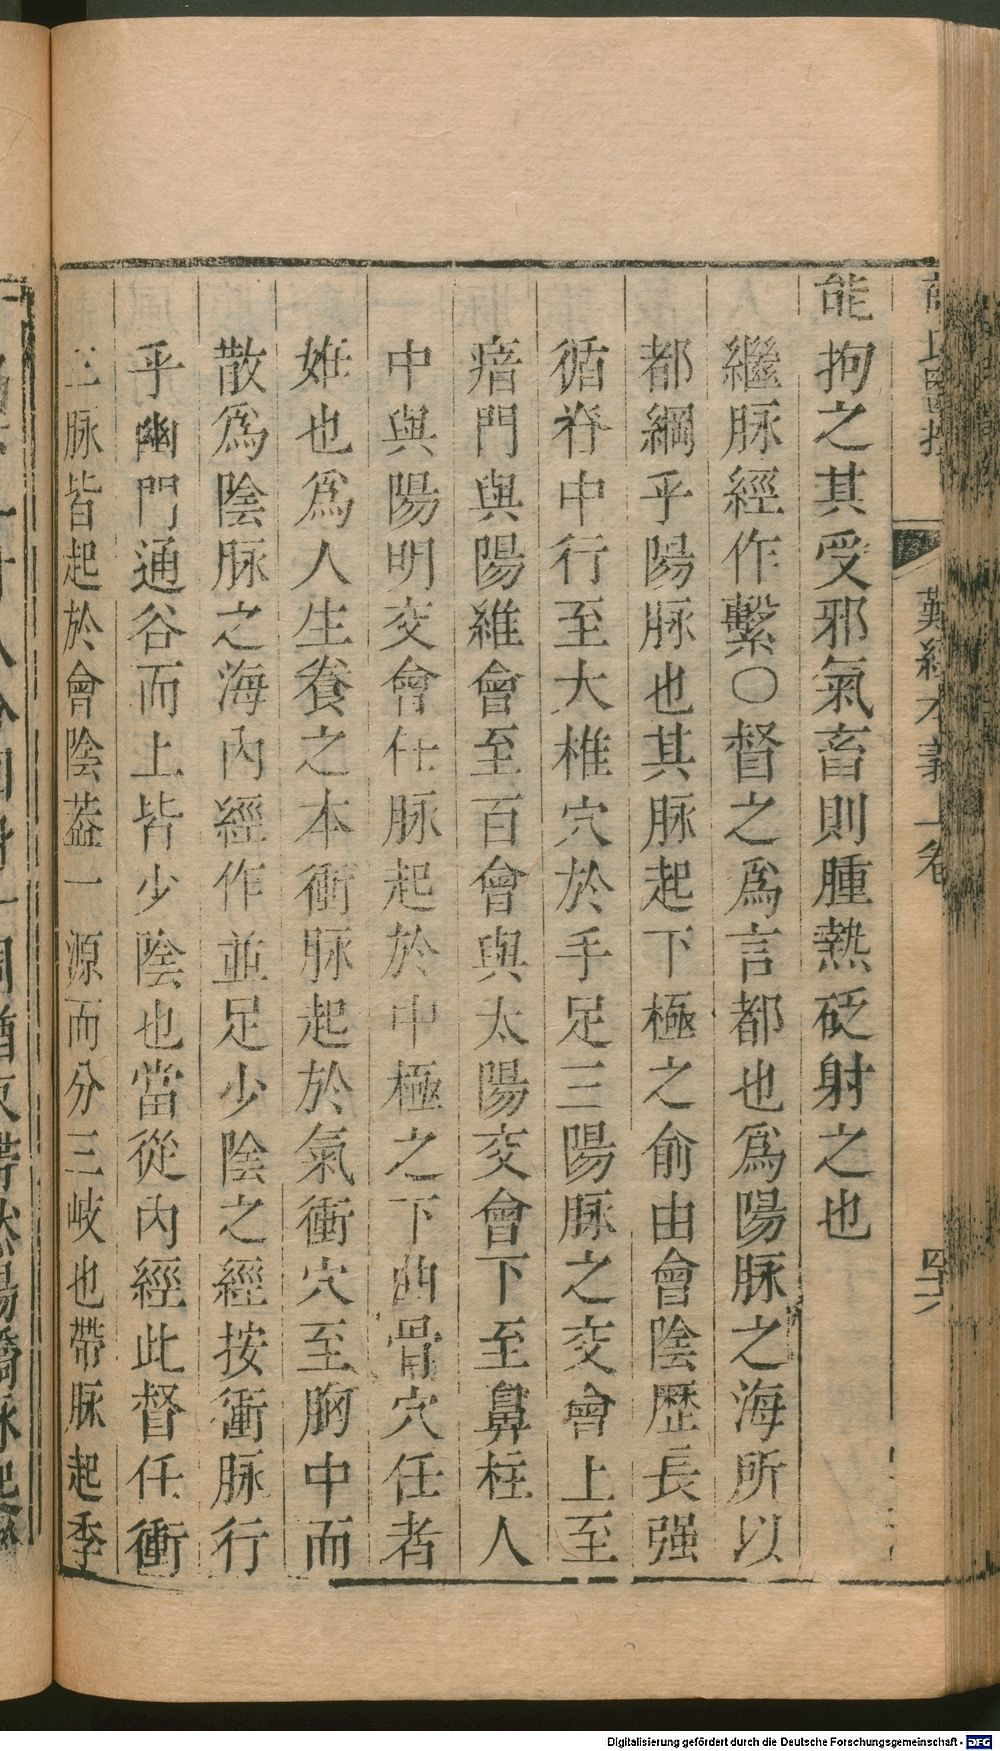 能拘之其受邪氣畜則腫熱砭射之也
繼脉經作繫〇督之爲言都也爲陽脉之海所以
都綱乎陽脉也其脉起下極之俞由會陰歷長强
循脊中行至大椎穴於手足三陽脉之交會上至
瘖門與陽維會至百會與太陽交會下至鼻柱人
中與陽明交會任脉起於中極之下曲骨穴任者
姙也爲人生養之本衝脉起於氣衝穴至胸中而
散爲陰脉之海內經作並足少陰之經按衝脉行
乎幽門通谷而上皆少陰也當從內經此督任衝
三脉皆起於會陰葢一源而分三岐也帶脉起季
難經本義上卷
四十六
Digitalisierung gefördert durch die Deutsche Forschungsgemeinschaft - DFG